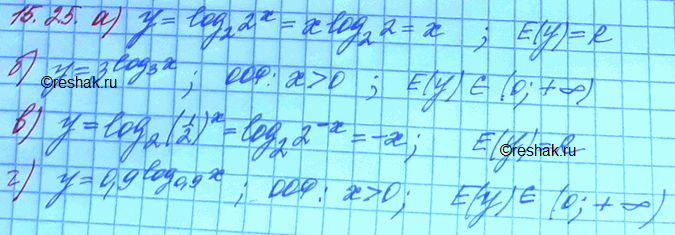 15.25. а) y = log₂ 2ˣ = x log₂ 2 = x ; E(y) = R
б) y = 3^log₃x ; ООФ: x > 0 ; E(y) ∈ (0; +∞)
в) y = log₂ (1/2)ˣ = log₂ 2⁻ˣ = -x ; E(y) = R
г) y = 0,9^log₀,₉x ; ООФ: x > 0 ; E(y) ∈ (0; +∞)
©5terka.com
©5terka.com